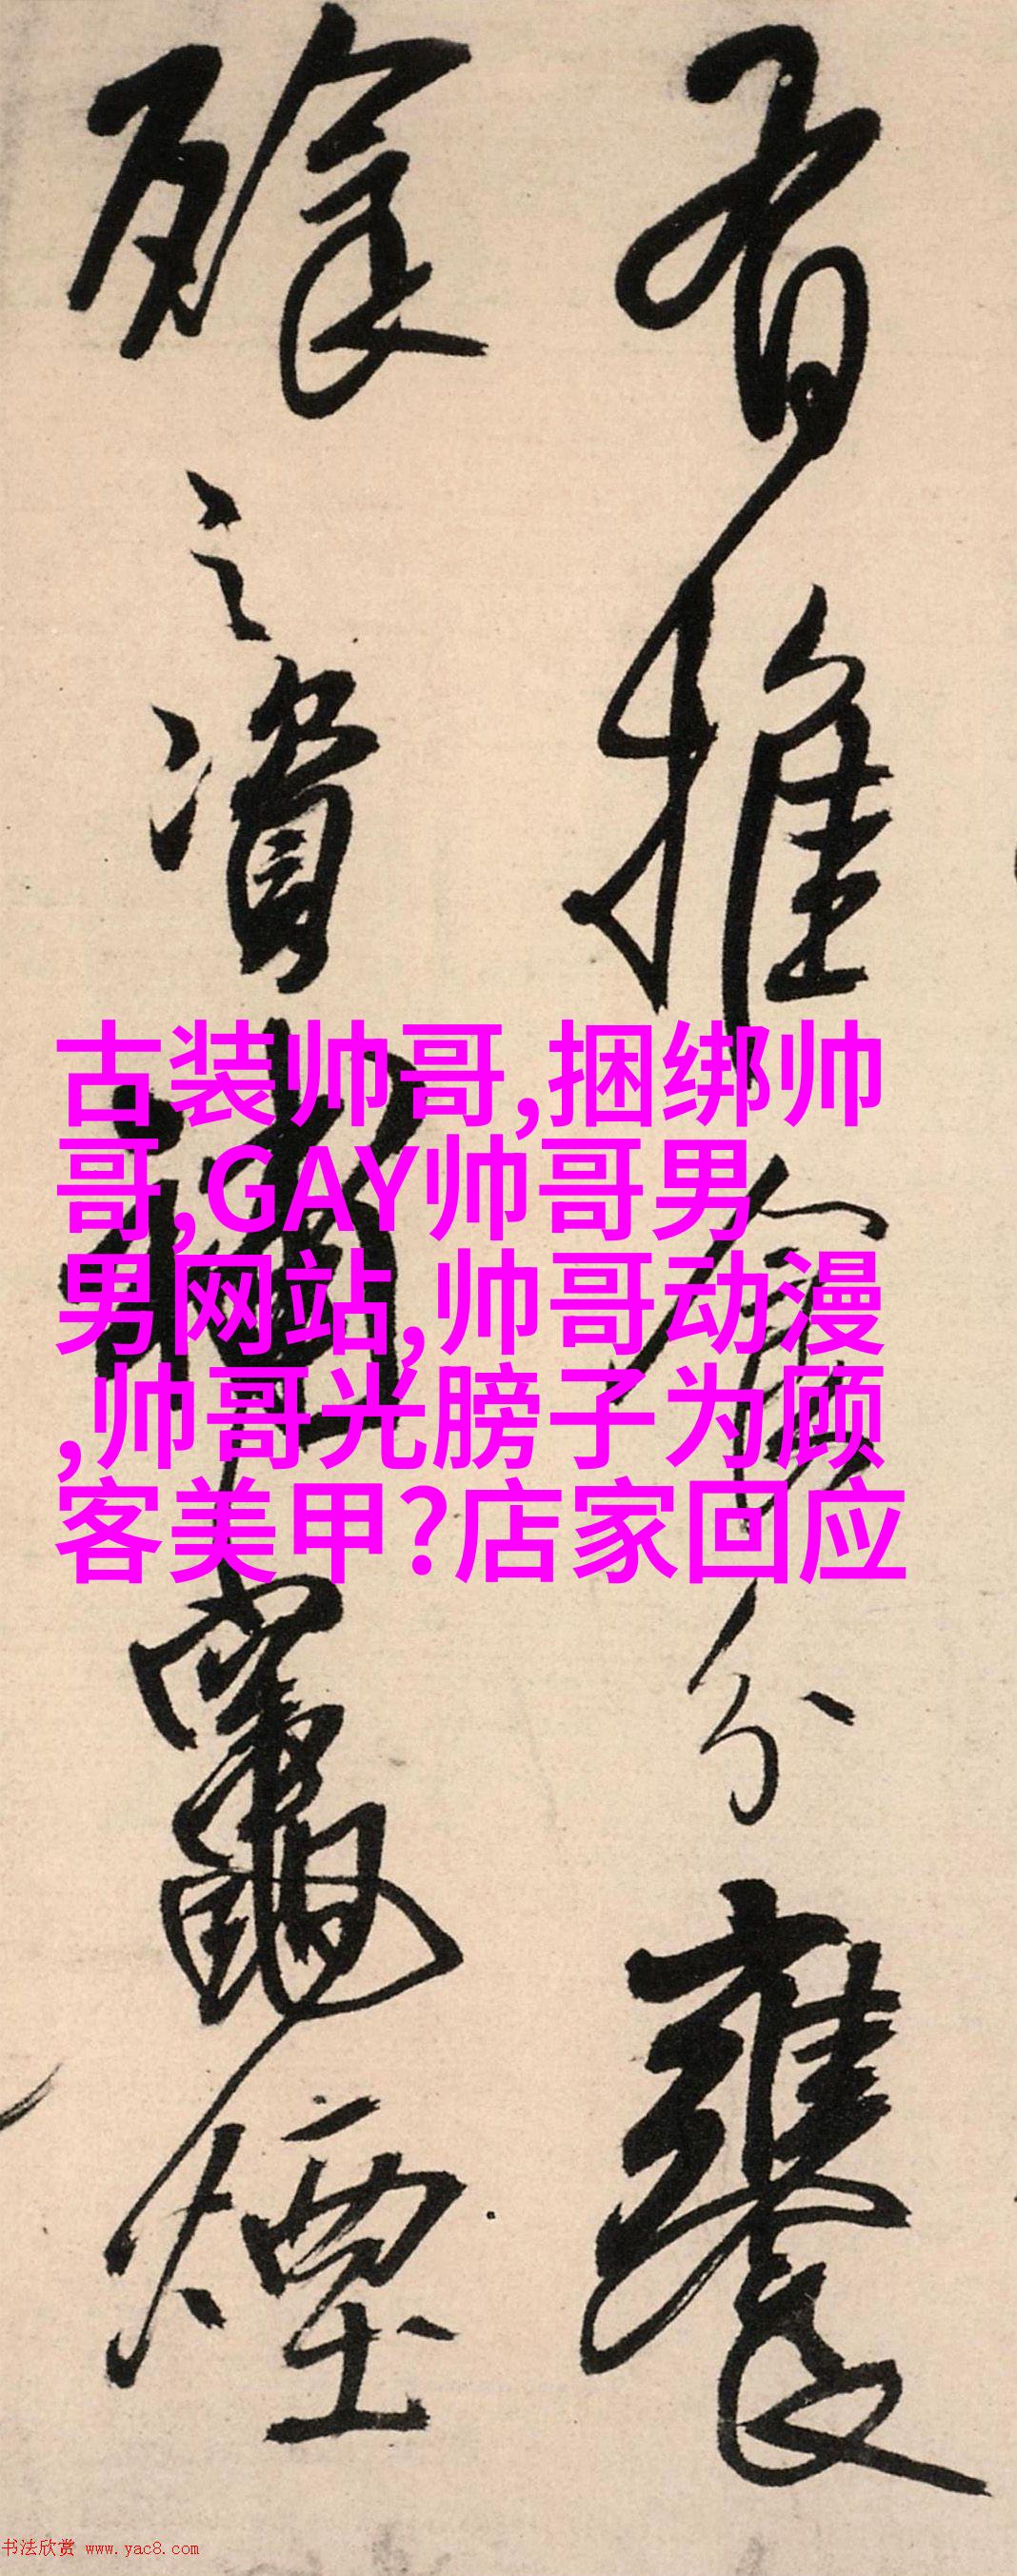 有推食分饔
餘之資諸營竈煙
古装帅哥,捆绑帅
哥,GAY帅哥男
男网站,帅哥动漫
,帅哥光膀子为顾
客美甲?店家回应
书法欣赏 www.yac8.com